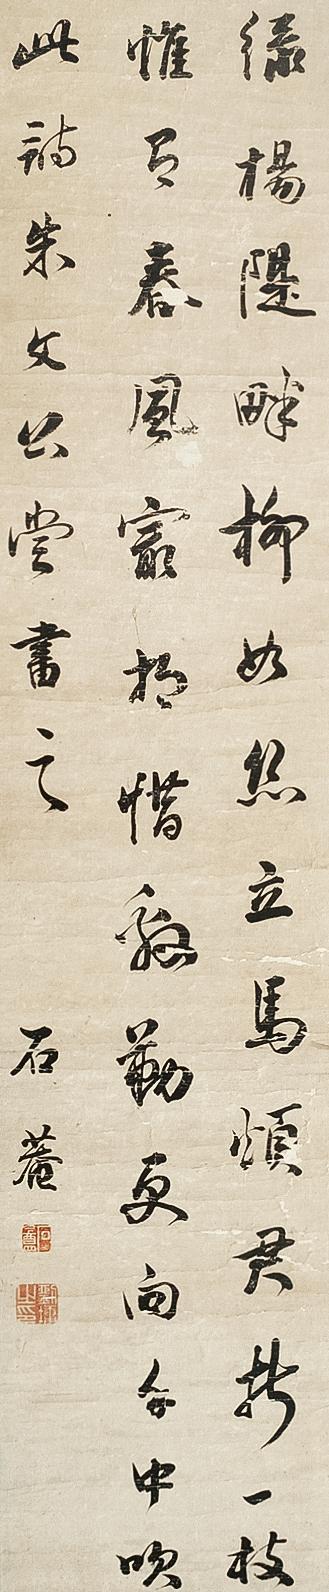 綠楊隄畔柳如絲立馬煩君折一枝
惟有春風最相惜殷勤更向手中吹
此詩朱文公嘗書之
石菴
劉墉之印